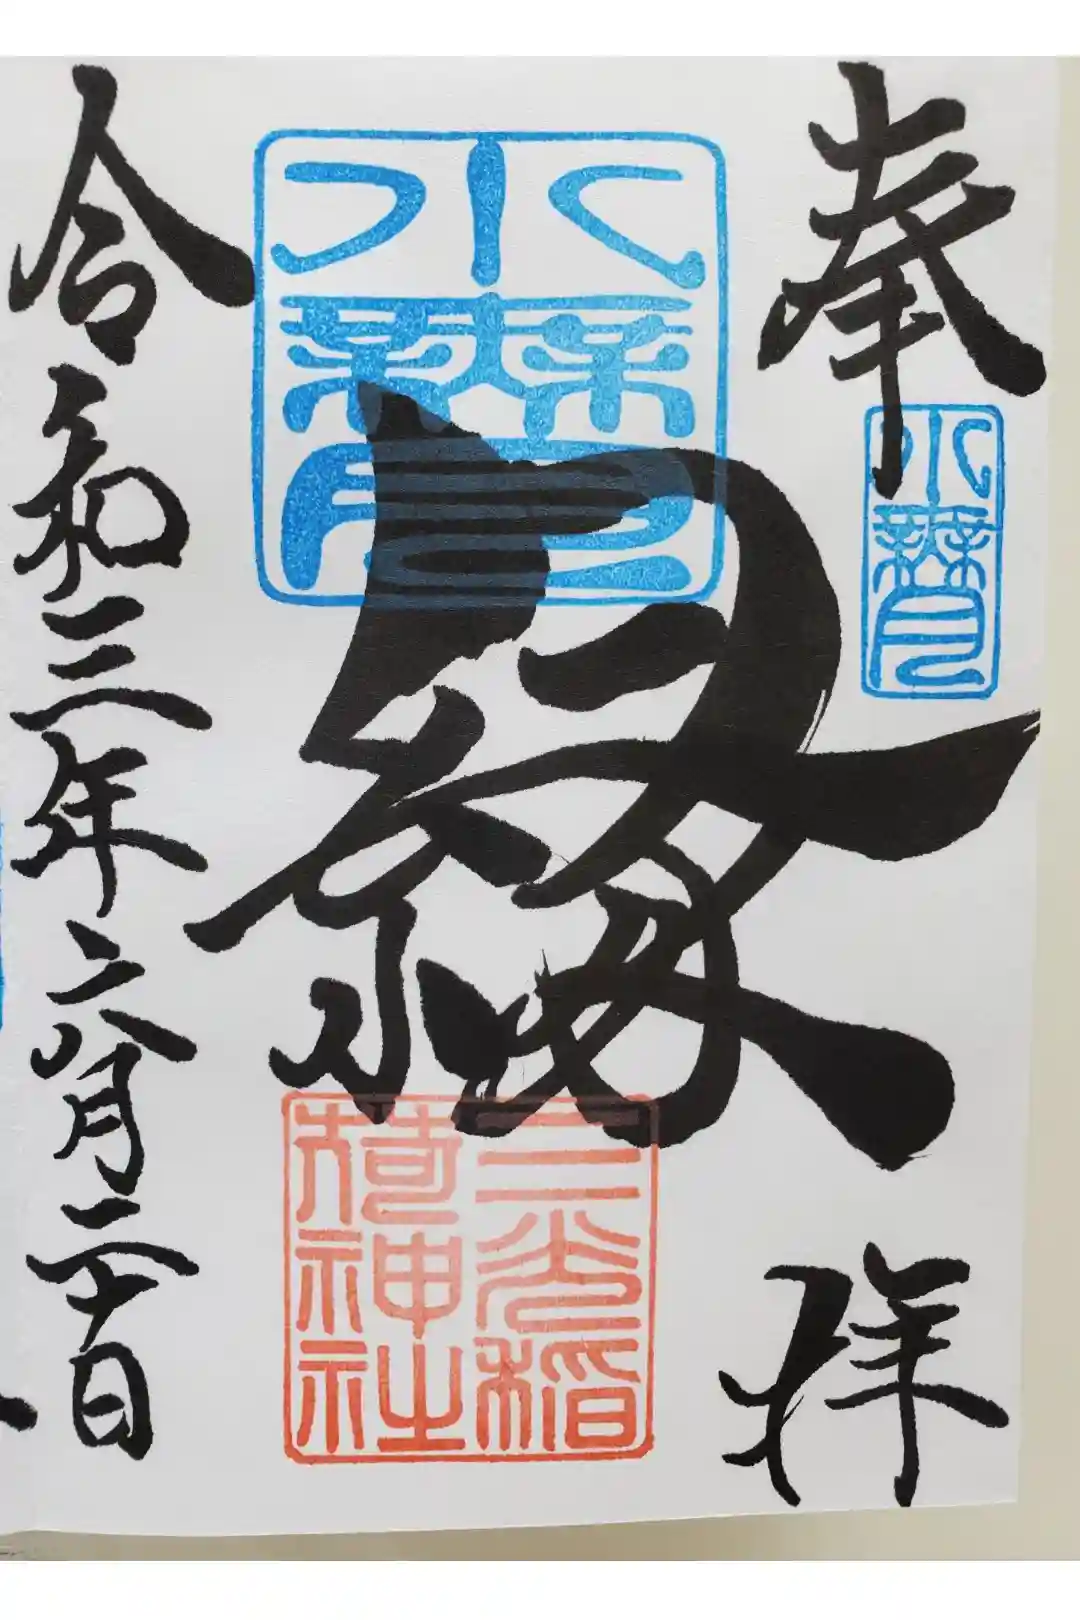 奉拝
水無月
水無月
縁
三光稲荷神社
令和三年六月二十日